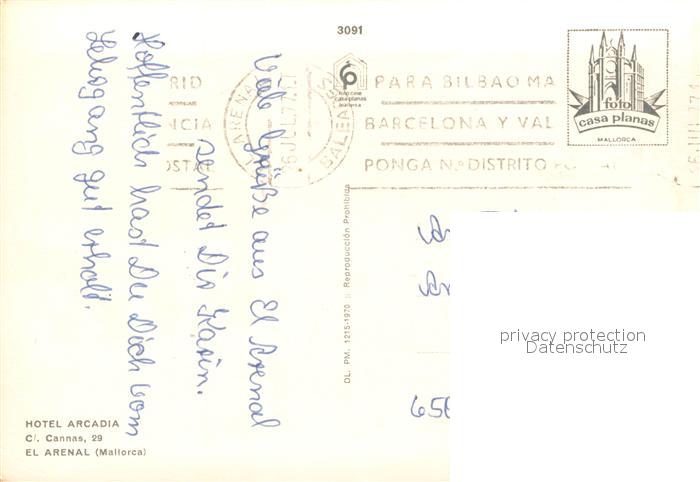 3091
Viele Grüße aus El Arenal
sendet Dir Karin.
Hoffentlich hast Du Dich vom
gang gut erholt.
HOTEL ARCADIA
C/. Cannas, 29
EL ARENAL (Mallorca)
DL. PM. 1215-1970 Reproducción Prohibida
foto casa
casa planas
mallorca
ARENAL
26 JUL 77
BALEARES
PARA BILBAO MA
BARCELONA Y VAL
PONGA N.º DISTRITO
RID
NCIA
OSTAL
foto
casa planas
MALLORCA
656
privacy protection
Datenschutz